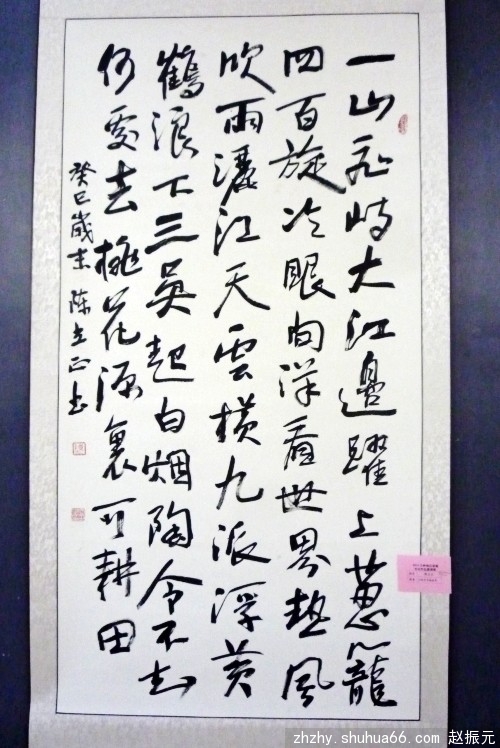 一山飞峙大江邊躍上蔥籠
四百旋冷眼向洋看世界热风
吹雨灑江天雲横九派浮黄
鶴浪下三吴起白烟陶令不知
何处去桃花源裏可耕田
癸巳歲末 陈立正书
zhzhy.shuhua66.com 赵振元